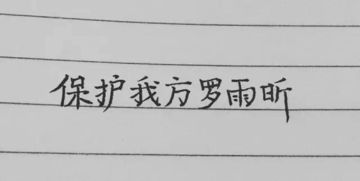 保护我方罗雨昕